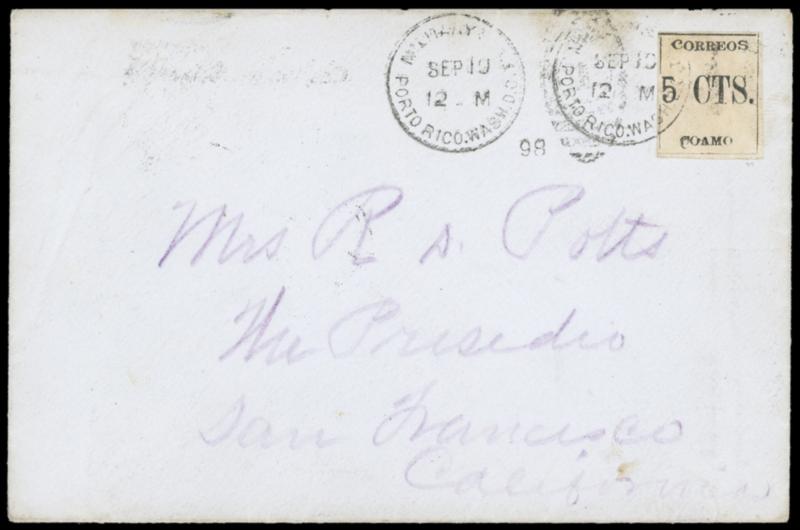 SEP 10
12 M
PORTO RICO. WASH. D.C.
98
SEP 10
12 M
PORTO RICO. WASH
CORREOS
5 CTS.
COAMO
Mrs R D. Potts
The Presidio
San Francisco
California